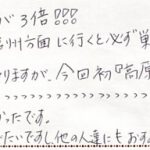 が3倍!!!
州方面に行くと必ず
りますが、今回初『高原
かったです。
たいですし、他の人達にもおす